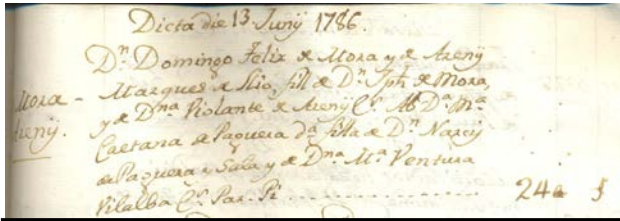 Dicta die 13 Junÿ 1786.
Dn. Domingo Felix de Mora y de Arenÿ
Mora - Marques de Llio, fill de Dn. Jph de Mora,
Areny. y de Dna Violante de Arenÿ Cs. Ab Da. Ma
Caetana de Paguera da. filla de Dn. Narcis
de Paguera y Sala y de Dna Ma Ventura
Vilalba Cs. Par. Pi ................ 24